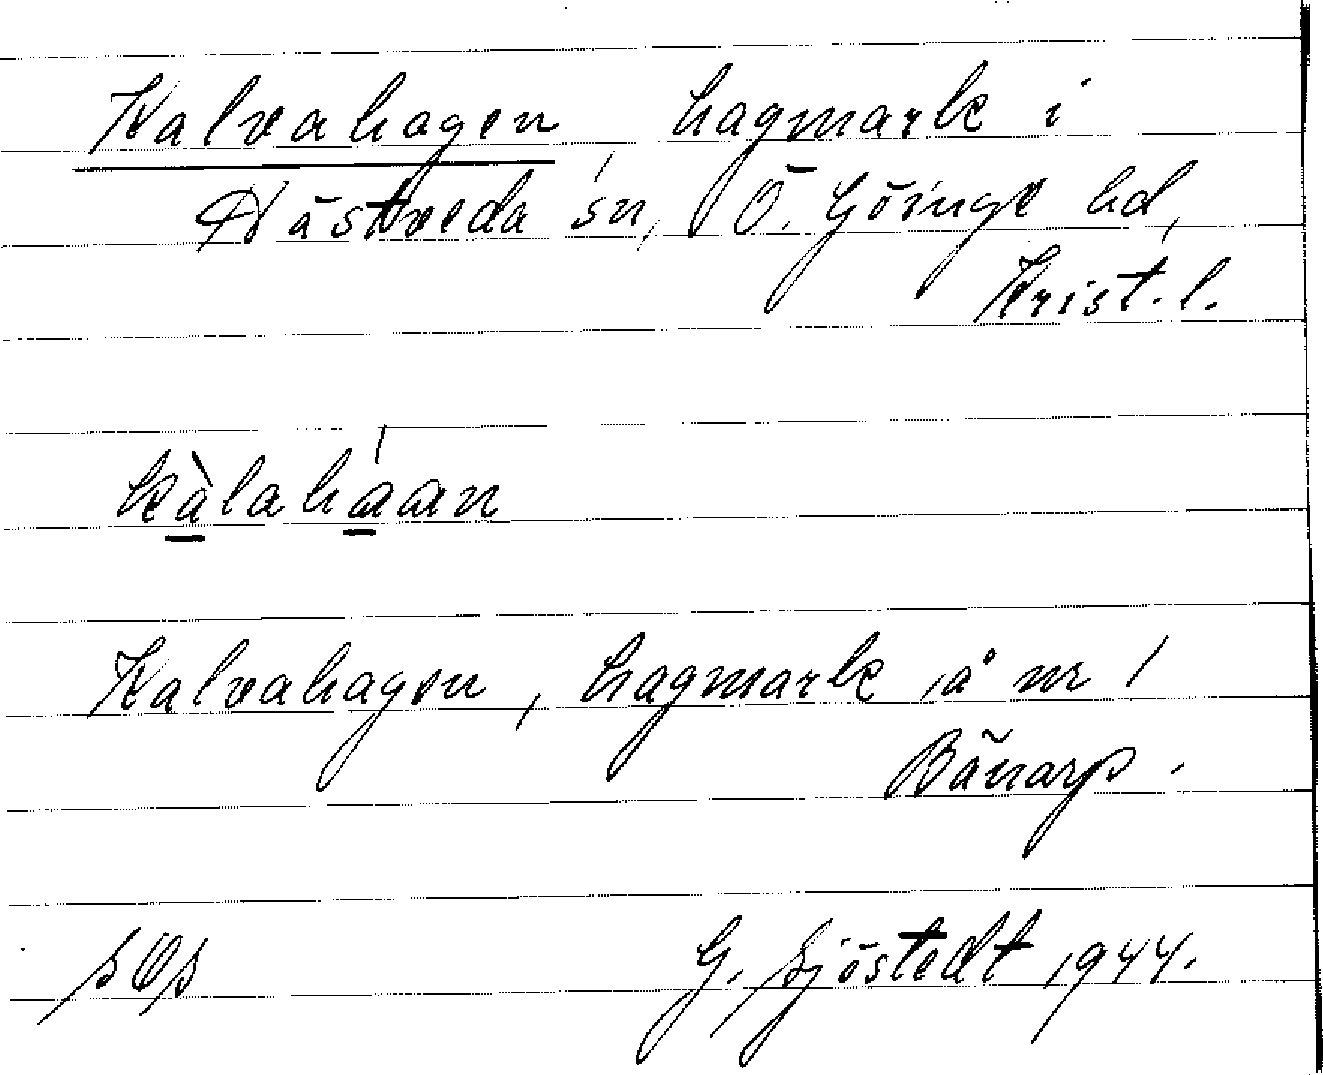 Kalvahagen, hagmark i
Hästveda sn, Ö. Göinge hd,
Krist. l.
kàlaháan
Kalvahagen, hagmark å nr 1
Bänarp.
G. Sjöstedt 1944.